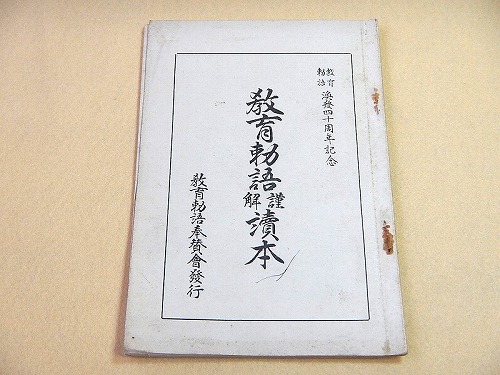 教育勅語渙發四十周年記念
教育勅語謹解讀本
教育勅語奉賛會發行